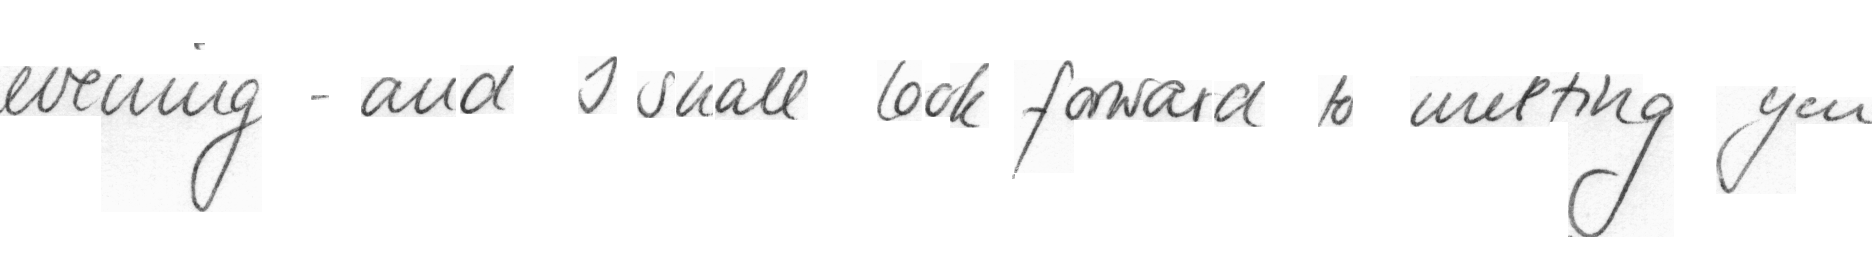 evening - and I shall look forward to meeting you